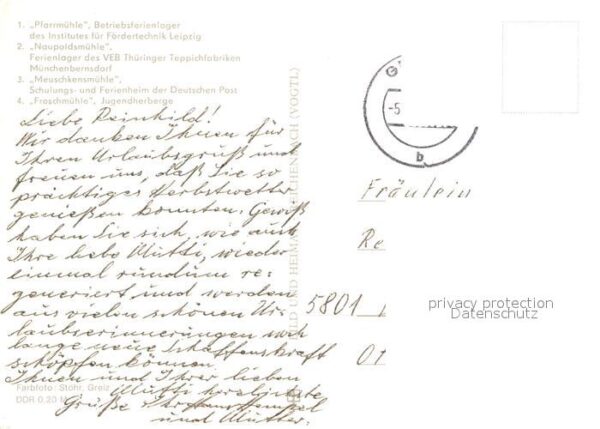 1. „Pfarrmühle", Betriebsferienlager
des Institutes für Fördertechnik Leipzig
2. „Naupoldsmühle",
Ferienlager des VEB Thüringer Teppichfabriken
Münchenbernsdorf
3. „Meuschkensmühle",
Schulungs- und Ferienheim der Deutschen Post
4. „Froschmühle", Jugendherberge
Liebe Reinhild!
Wir danken Ihnen für
Ihren Urlaubsgruß und
freuen uns, daß Sie so
prächtiges Herbstwetter
genießen konnten. Gewiß
haben Sie sich, wie auch
Ihre liebe Mutti, wieder
einmal rundum re-
generiert und werden
aus vielen schönen Ur-
laubserinnerungen noch
lange neue Schaffenskraft
schöpfen können.
Ihnen und Ihrer lieben
Mutti herzlichste
Grüße Ihr
und Mutter.
Farbfoto: Stöhr, Greiz
DDR 0,20 M
BILD UND HEIMAT REICHENBACH (VOGTL)
-5
b
Fräulein
Re
5801
01
privacy protection
Datenschutz